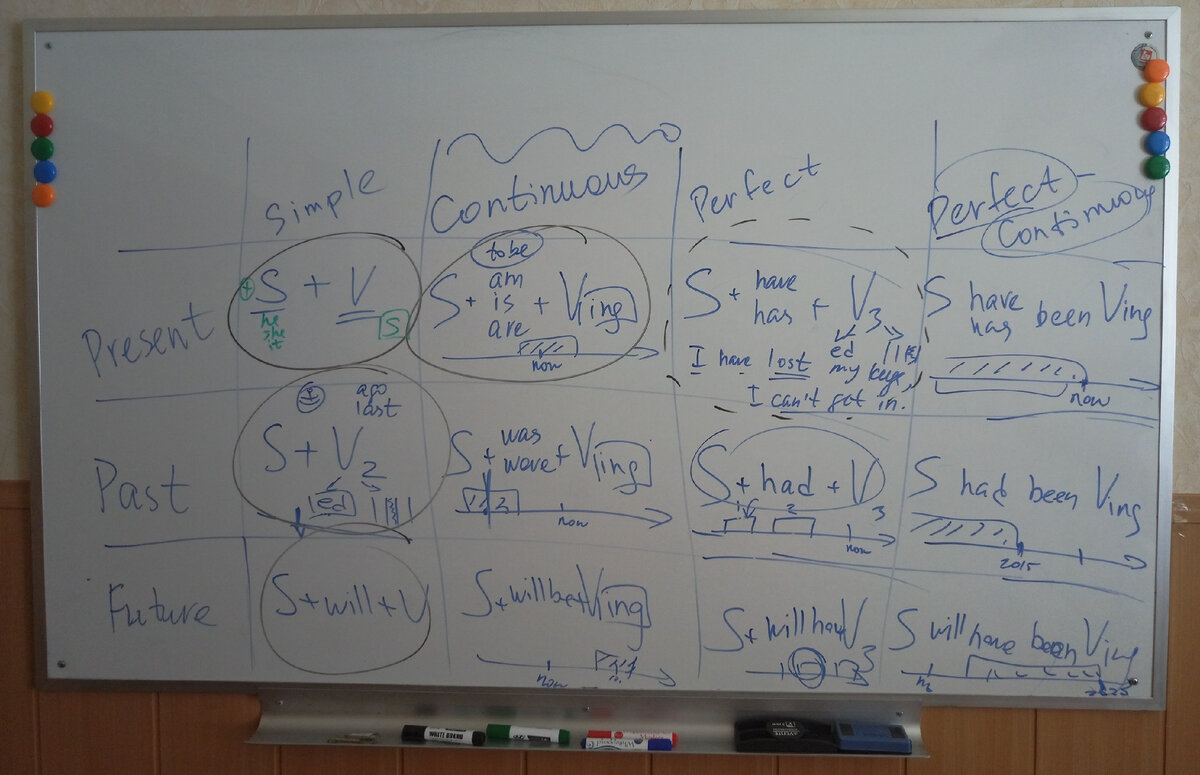 Simple
Continuous
Perfect
Perfect-
Continuous
Present
+ S + V
he
she
it
s
to be
S + am + Ving
is
are
now
S + have + V3
has
ed
I have lost my keys,
I can't get in.
S have been Ving
has
now
Past
ago
last
S + V2
ed
S + was + Ving
wave
now
S + had + V3
2
now
S had been Ving
2015
Future
S + will + V
S + will be + Ving
now
S + will have V3
S will have been Ving
2025
WHITE BOARD